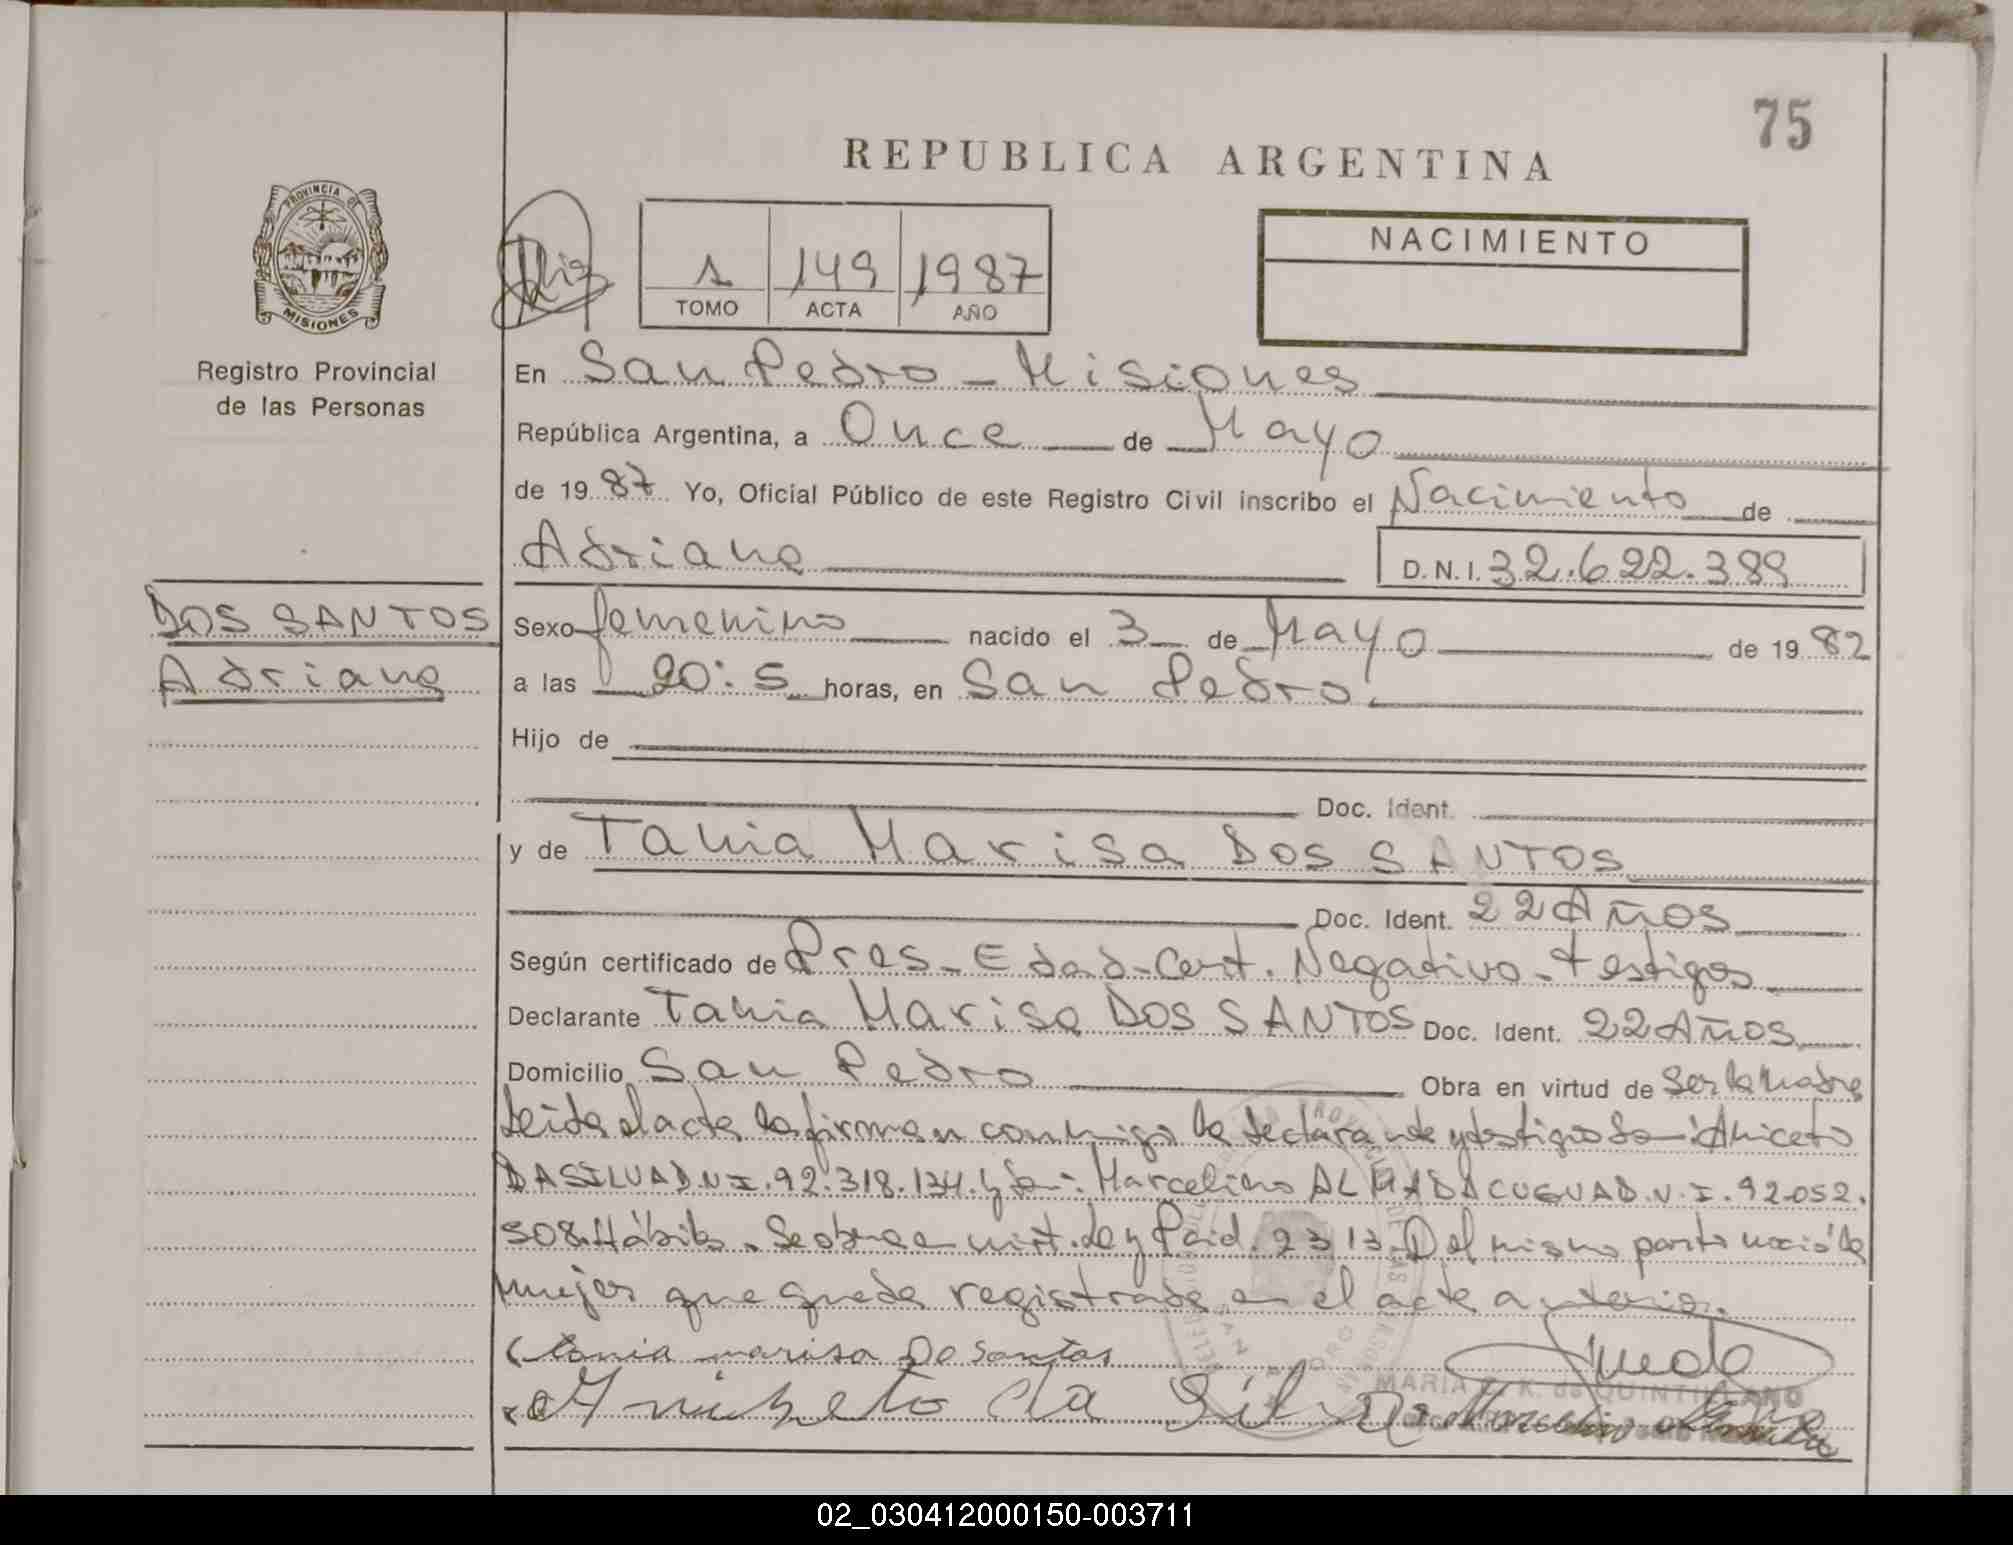 75
REPUBLICA ARGENTINA
PROVINCIA DE
MISIONES
Registro Provincial
de las Personas
1 149 1987
TOMO ACTA AÑO
NACIMIENTO
En San Pedro - Misiones
República Argentina, a Once de Mayo
de 1987 Yo, Oficial Público de este Registro Civil inscribo el Nacimiento de
Adriana
D.N.I. 32.622.389
DOS SANTOS
Adriana
Sexo femenino nacido el 3 de Mayo de 1982
a las 20:5 horas, en San Pedro
Hijo de
Doc. Ident.
y de Tania Marisa DOS SANTOS
Doc. Ident. 22 Años
Según certificado de Pres- Edad- Cert. Negativo- testigos
Declarante Tania Marisa DOS SANTOS Doc. Ident. 22 Años
Domicilio San Pedro Obra en virtud de Ser la Madre
Leida el acta la firman conmigo la declarante y testigos Aniceto
DA SILVA D.N.I. 92.318.134. y Marcelino D.N.I. 92.052.
508. Se obra en virt. Ley 2313. Del mismo parto nació la
mujer que queda registrada en el acta anterior.
tania marisa Do Santos
Anizeto da Silva
MARIA K. de QUINTILLANO
02_030412000150-003711